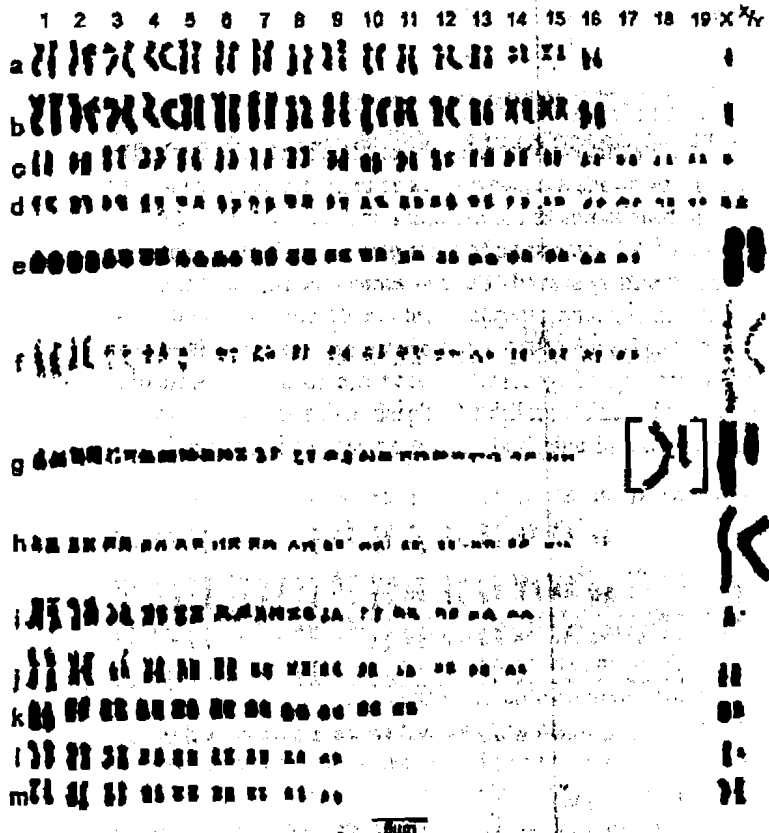 1 2 3 4 5 6 7 8 9 10 11 12 13 14 15 16 17 18 19 X X/Y
a
b
c
d
e
f
g
h
i
j
k
l
m
5um